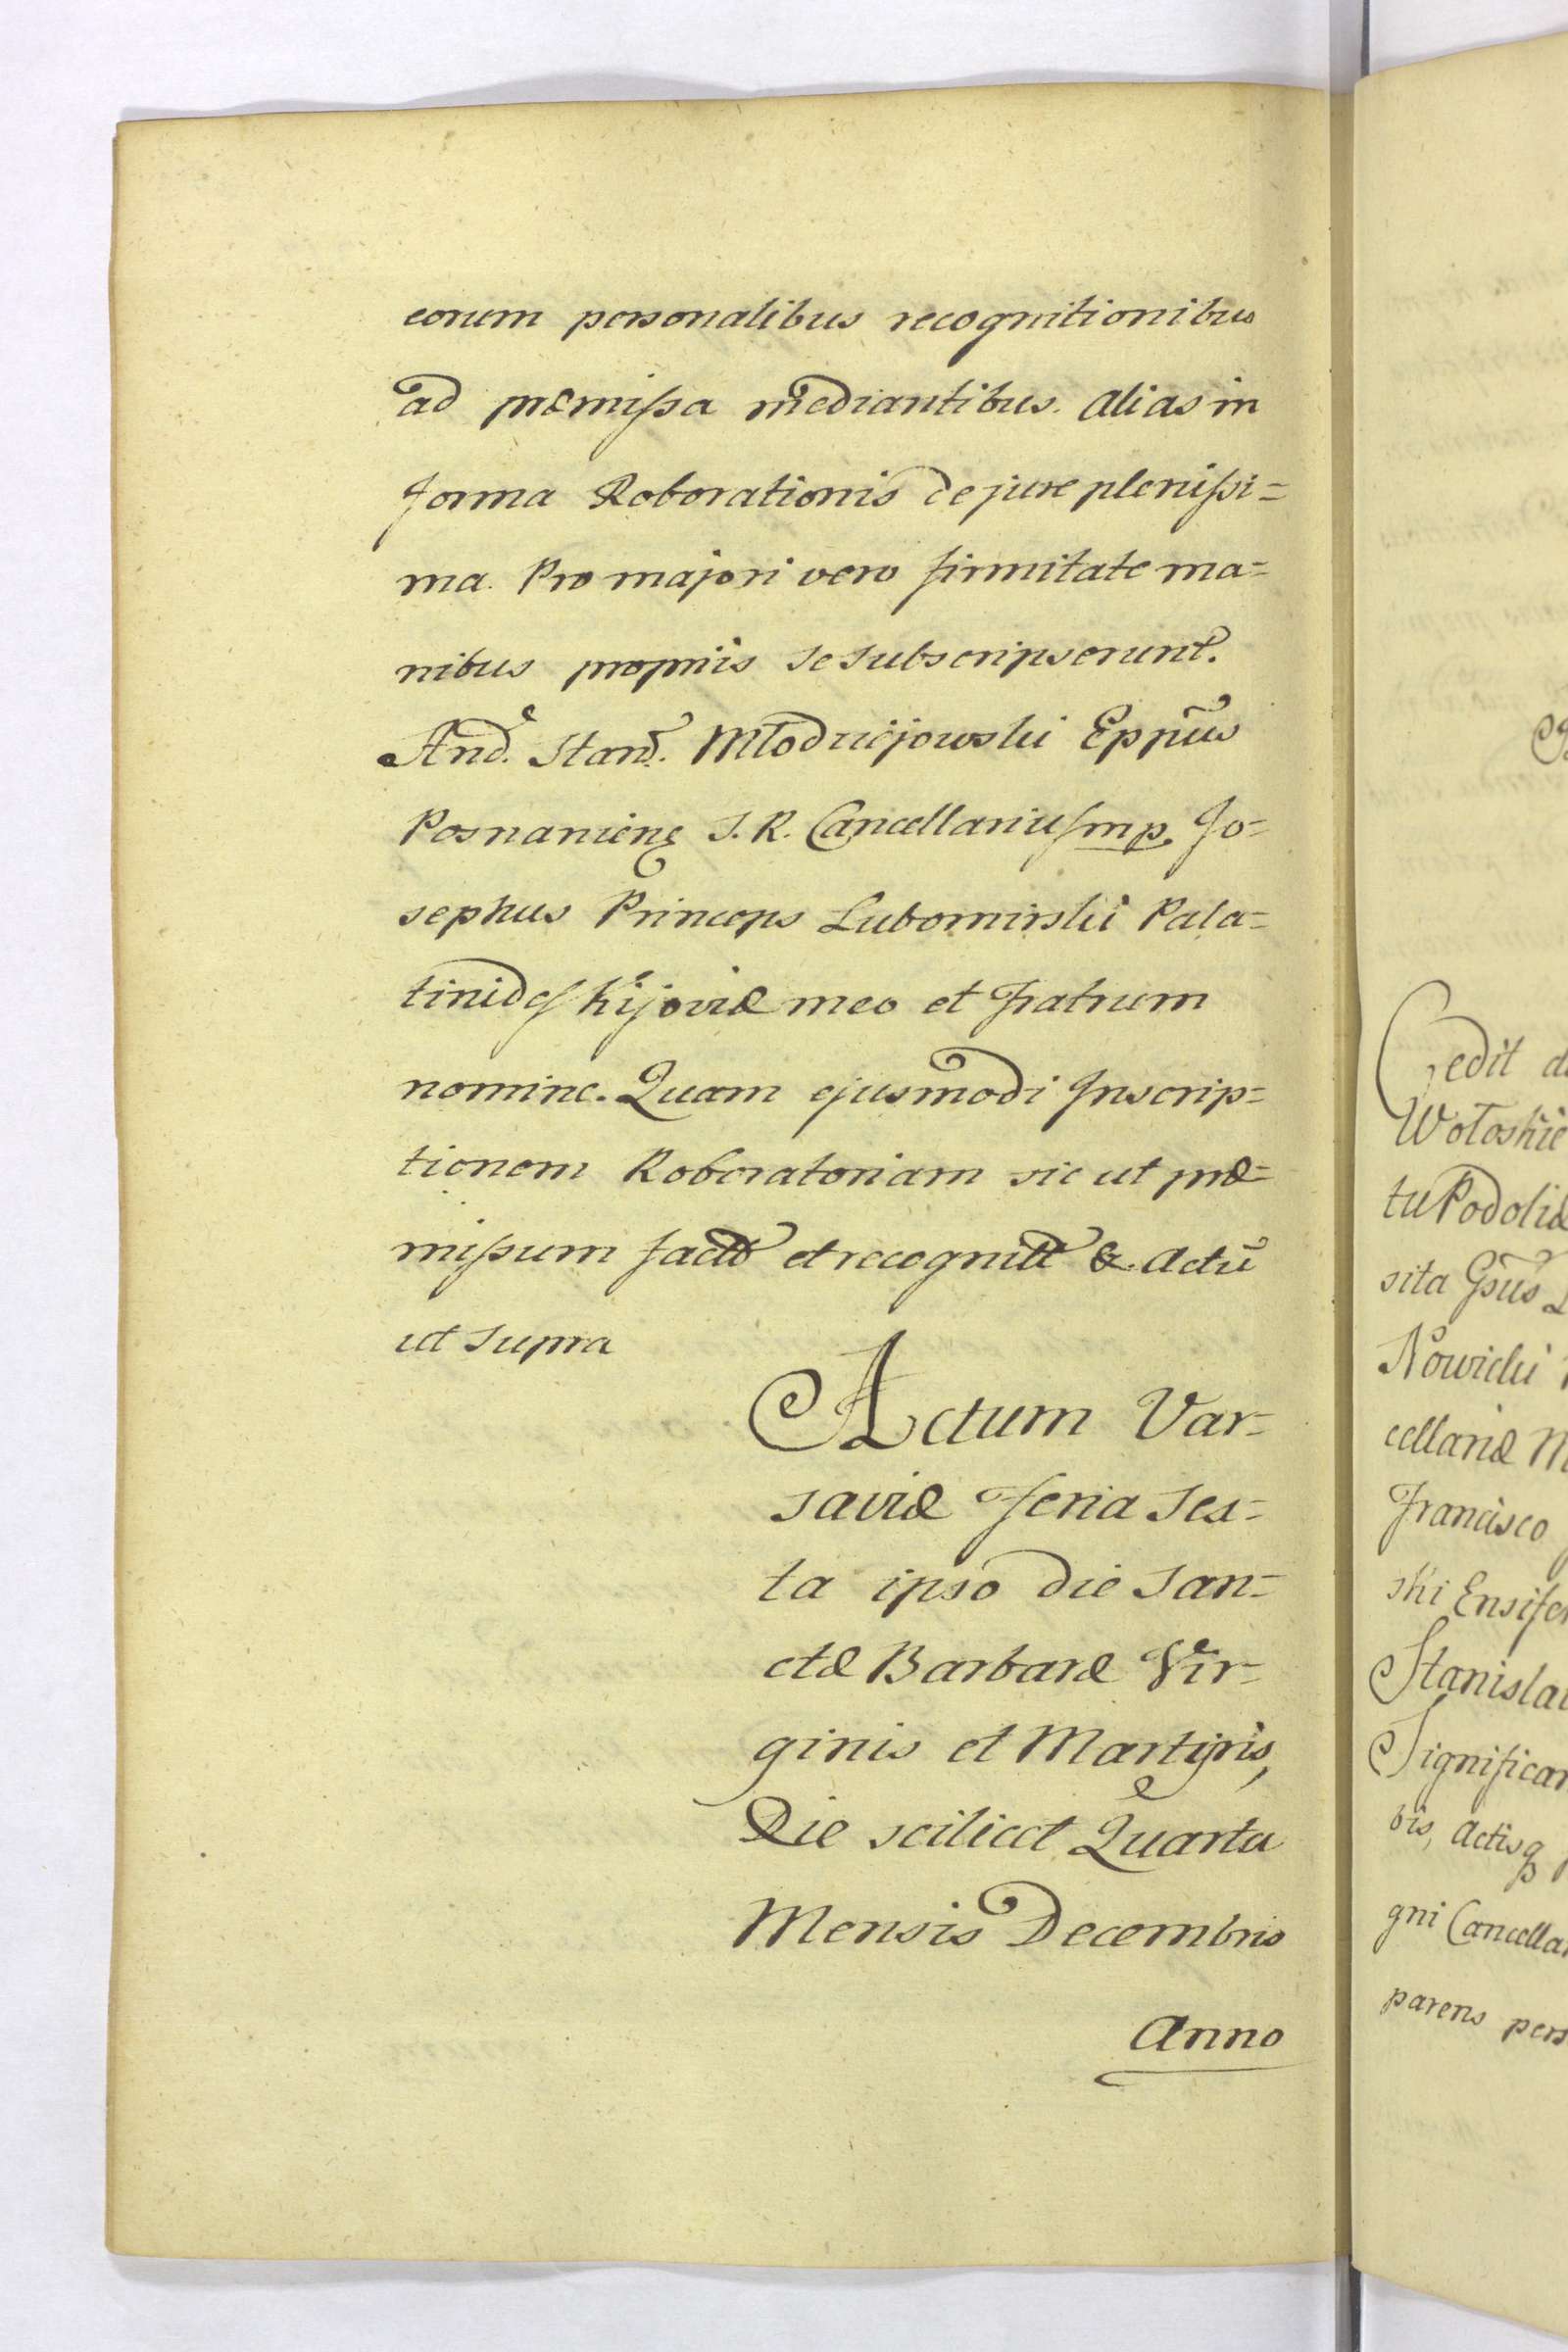 eorum personalibus recognitionibus
ad præmissa mediantibus. Alias in
forma Roborationis de jure plenissi=
ma. Pro majori vero firmitate ma=
nibus propriis se subscripserunt.
And. Stan. Młodziejowski Eppũs
Posnanien S. R. Cancellarius mp. Jo=
sephus Princeps Lubomirski Pala=
tinides Kijoviæ meo et Fratrum
nomine. Quam ejusmodi Inscrip=
tionem Roboratoriam sic ut præ=
missum facto et recognitt & Actũ
ut supra
Actum Var=
saviæ Feria Sex=
ta ipso die San=
ctæ Barbaræ Vir=
ginis et Martyris,
Die scilicet Quarta
Mensis Decembris
Anno
Cedit
Wołoskie
tu Podoliæ
sita Gsũs
Nowicki
cellariæ M
Francisco
ski Ensifer
Stanislau
Significan
bis, Actisq
gni Cancellar
parens pers